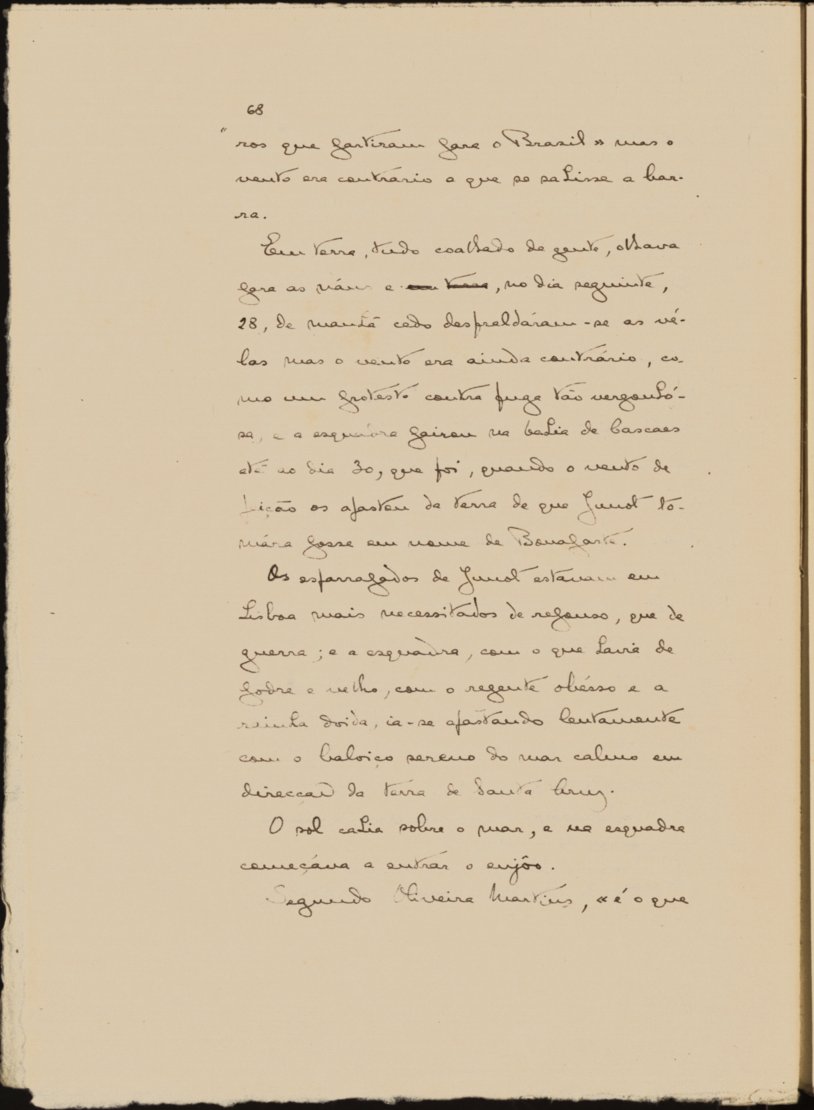 68
"ros que partiram para o Brasil» mas o
vento era contrário a que se sahisse a bar-
ra.
Em terra, tudo coalhado de gente, olhava
para as náus e em terra, no dia seguinte,
28, de manhã cedo despraldáram-se as vé-
las mas o vento era ainda contrário, co-
mo um protesto contra fuga tão vergonhó-
sa, e a esquadra pairou na bahia de Cascaes
até ao dia 30, que foi, quando o vento de
feição os afastou da terra de que Junot to-
mára posse em nome de Bonaparte.
Os esfarrapados de Junot estavam em
Lisboa mais necessitados de repouso, que de
guerra; e a esquadra, com o que havia de
podre e velho, com o regente obésso e a
rainha doida, ia-se afastando lentamente
com o baloiço sereno do mar calmo em
direcção da terra de Santa Cruz.
O sol cahia sobre o mar, e na esquadra
começáva a entrár o enjôo.
Segundo Oliveira Martins, «é o que